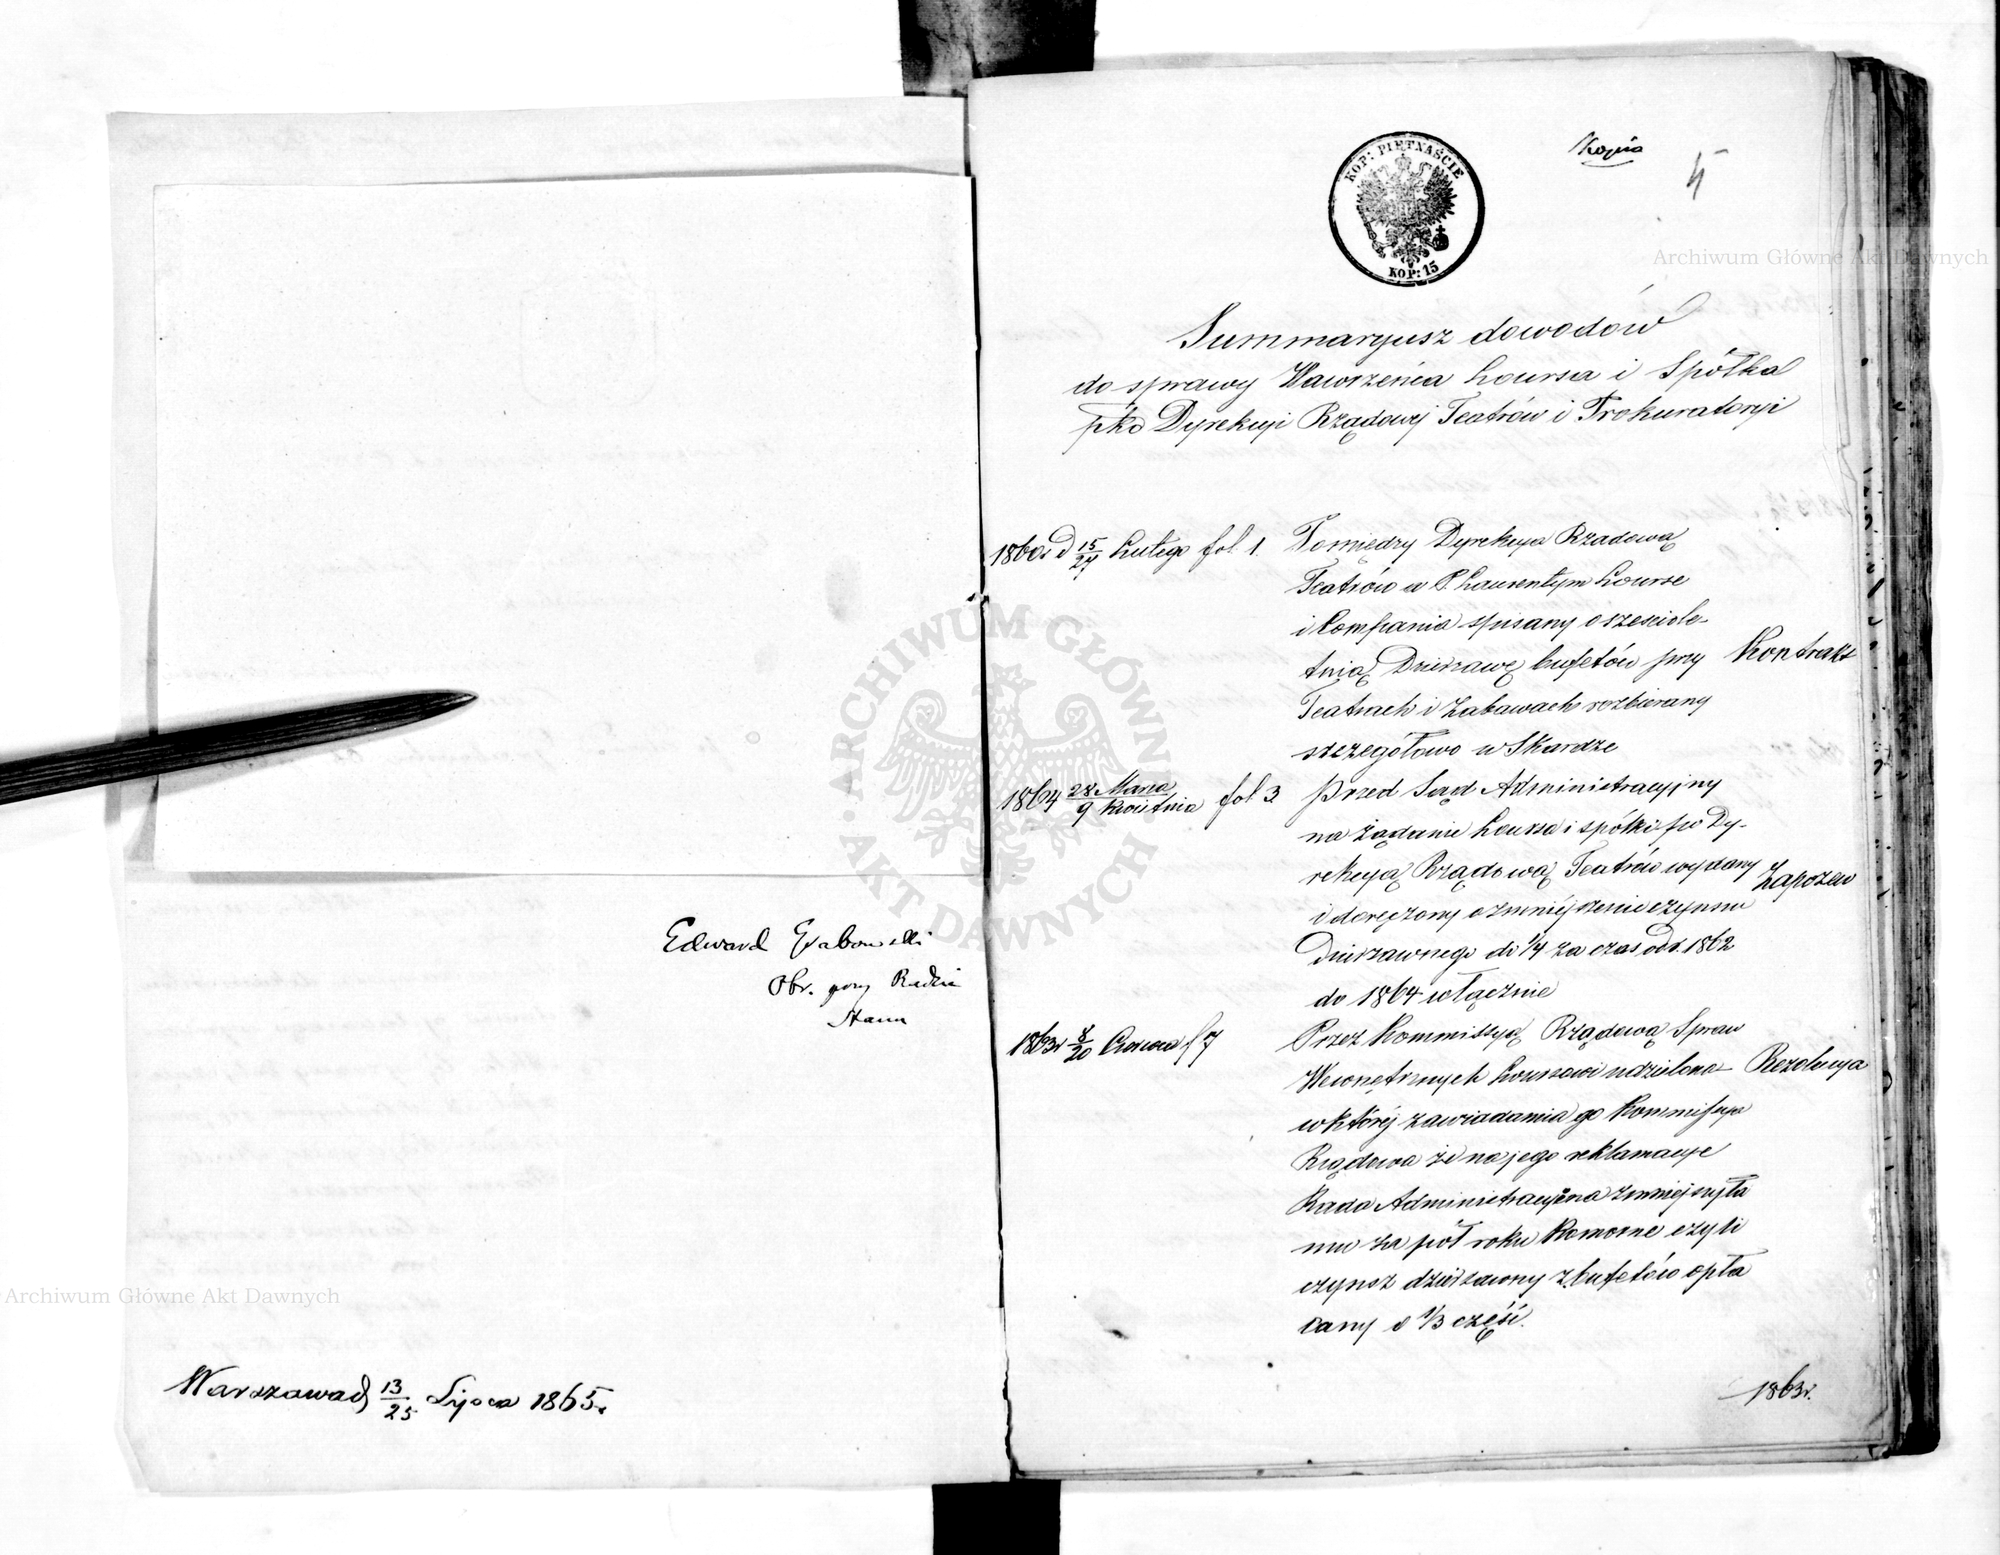 Edward Grabowski
Obr. przy Radzie
Stanu
Warszawa d 13/25 Lipca 1865r.
Kopia
5
KOP: PIĘTNAŚCIE
KOP: 15
Summaryusz dowodów
do sprawy Wawrzeńca Loursa i Spółka
pko Dyrekcyi Rządowej Teatrów i Prokuratoryi
1860r d 15/27 Lutego fol 1. Pomiędzy Dyrekcya Rządową
Teatrów a P. Laurentym Lourse
i Kompania spisany o szesciole-
tnią Dzierzawę bufetów przy Kontrakt
Teatrach i Zabawach rozbierany
szczegółowo w Skardze
1864 28 Marca/9 Kwietnia fol 3 Przed Sąd Administracyjny
na żądanie Loursa i spółki pko Dy-
rekcyą Rządową Teatrów wydany Zapozew
i doręczony o zmniejszenie czynszu
Dzierzawnego do 1/4 za czas od r. 1862
do 1864 włącznie
1863r 8/20 Czerwca f 7 Przez Kommissyą Rządową Spraw
Wewnętrznych Loursowi udzielona Rezolucya
w której zawiadamia go Kommissya
Rządowa że na jego reklamacye
Rada Administracyjna zmniejszyła
mu za pół roku Komorne czyli
czynsz dzierżawny z bufetów opła
cany o 1/3 część.
1863r.
ARCHIWUM GŁÓWNE AKT DAWNYCH
Archiwum Główne Akt Dawnych
Archiwum Główne Akt Dawnych